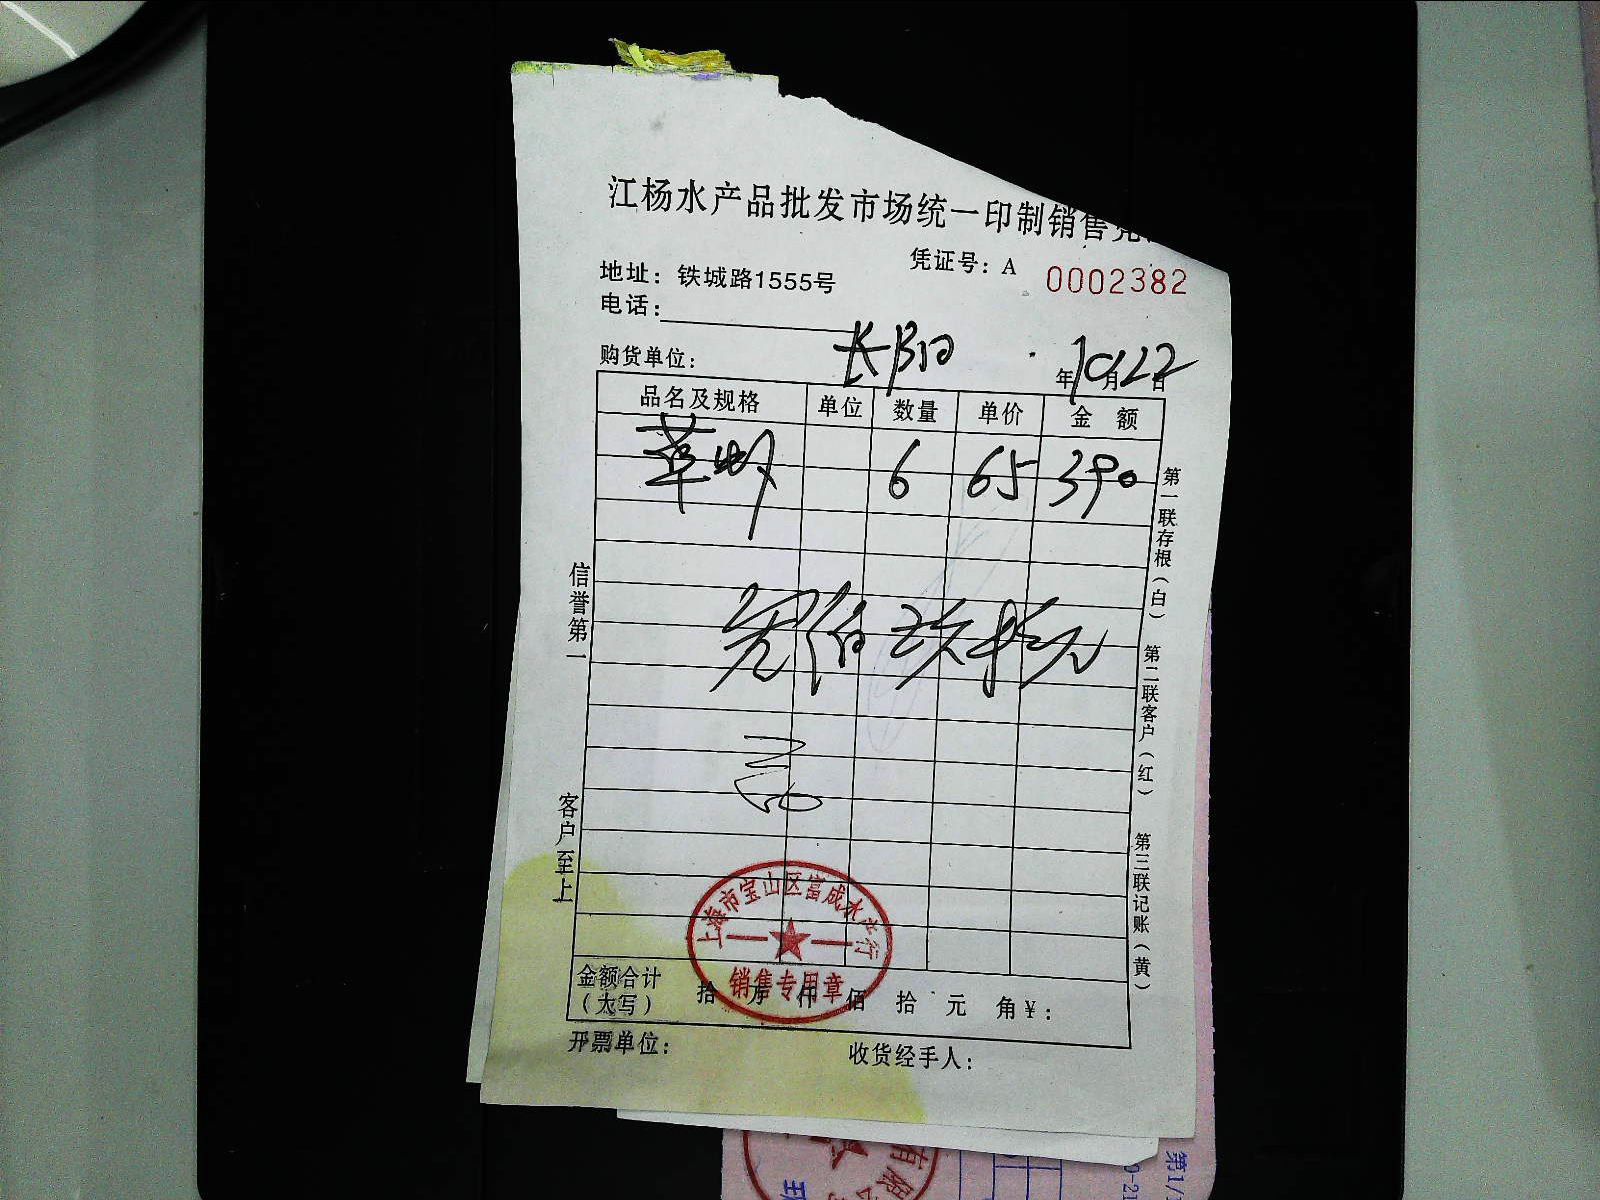 江杨水产品批发市场统一印制销售凭
凭证号：A 0002382
地址：铁城路1555号
电话：
购货单位：
长阳
年10月22日
品名及规格 单位 数量 单价 金额
草虾 6 65 390
叁佰玖拾元
信誉第一
客户至上
第一联存根（白）
第二联客户（红）
第三联记账（黄）
上海市宝山区富成水产行
销售专用章
金额合计（大写） 拾 万 仟 佰 拾 元 角 ¥：
开票单位： 收货经手人：
有限公
第1/
0-21